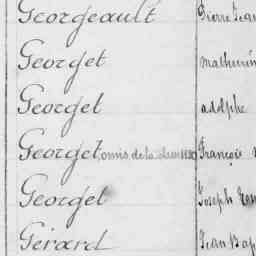 Georgeault Pierre Jean
Georget mathurin
Georget adolphe
Georget, omis de la classe 1880 François
Georget Joseph
Gérard Jean Bap